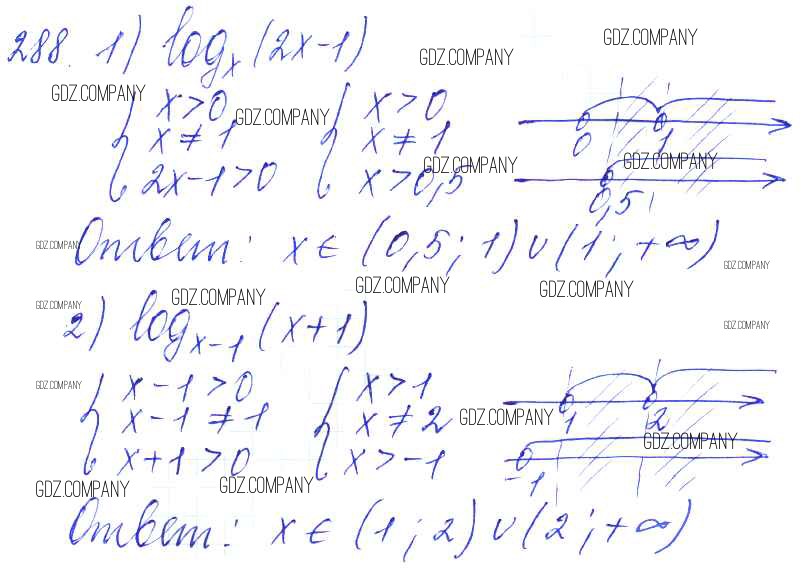 288. 1) log_x (2x-1)
GDZ.COMPANY GDZ.COMPANY GDZ.COMPANY GDZ.COMPANY
{ x>0 { x>0
x≠1 x≠1
2x-1>0 x>0,5
0 1
GDZ.COMPANY GDZ.COMPANY
0,5
Ответ: x∈(0,5;1)∪(1;+∞)
GDZ.COMPANY GDZ.COMPANY
GDZ.COMPANY GDZ.COMPANY GDZ.COMPANY
GDZ.COMPANY GDZ.COMPANY
2) log_{x-1} (x+1)
{ x-1>0 { x>1
x-1≠1 x≠2
x+1>0 x>-1
1 2
GDZ.COMPANY GDZ.COMPANY GDZ.COMPANY
-1
GDZ.COMPANY GDZ.COMPANY
Ответ: x∈(1;2)∪(2;+∞)